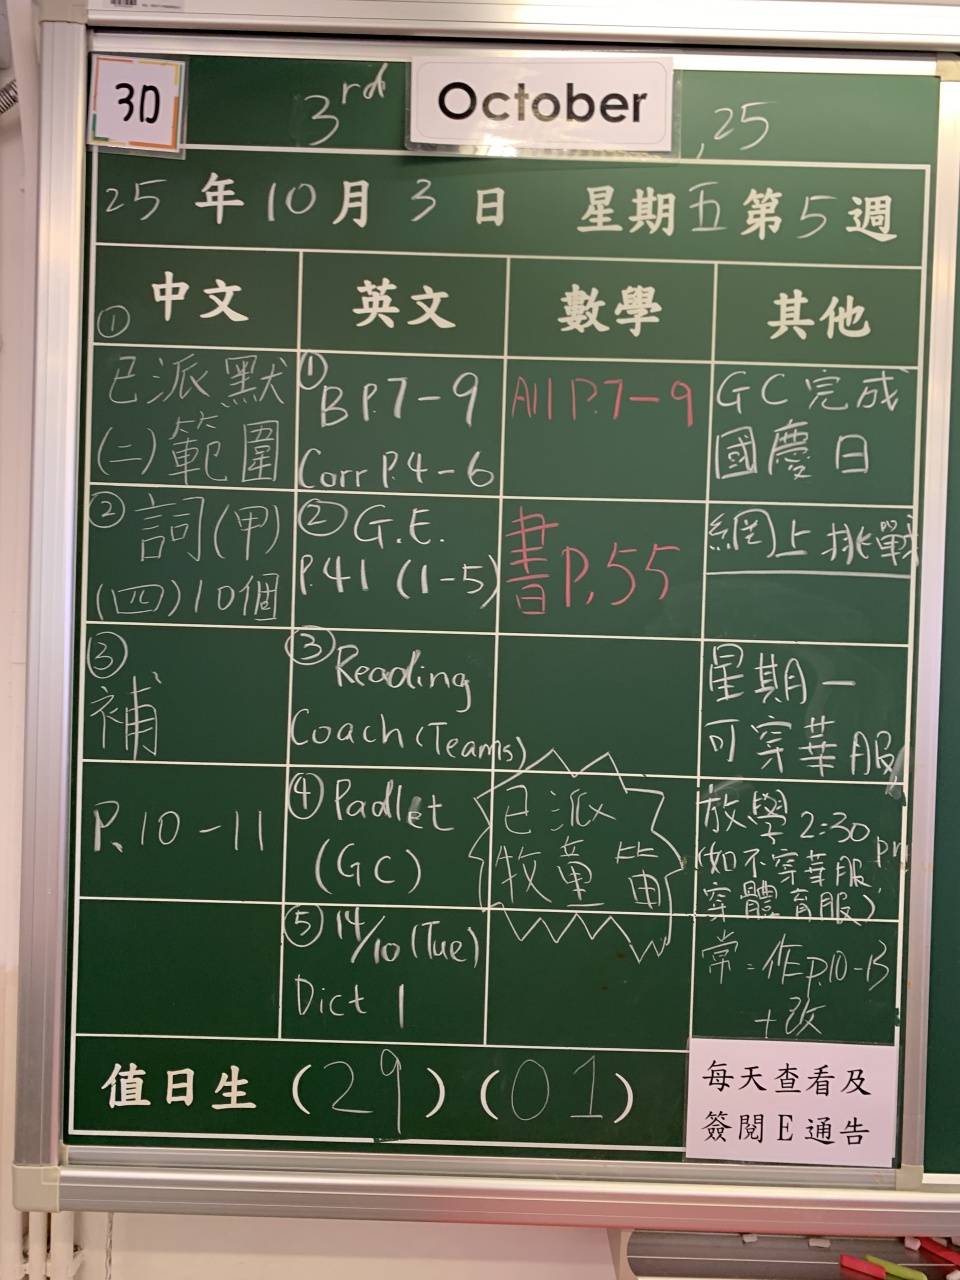 3D
3rd October , 25
25 年 10 月 3 日 星期五第5週
中文
①
已派默
(二)範圍
②詞(甲)
(四)10個
③
補
P.10-11
英文
①B P.7-9
Corr P.4-6
②G.E.
P.41 (1-5)
③Reading
Coach(Teams)
④Padlet
(GC)
⑤14/10(Tue)
Dict 1
數學
All P.7-9
書P.55
已派
牧童笛
其他
GC完成
國慶日
網上挑戰
星期一
可穿華服
放學2:30pm
(如不穿華服
穿體育服)
常:作P.10-13
+改
值日生(29)(01)
每天查看及
簽閱E通告